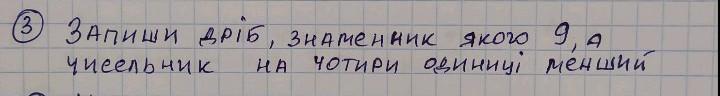 ③ Запиши дріб, знаменник якого 9, а
чисельник на чотири одиниці менший